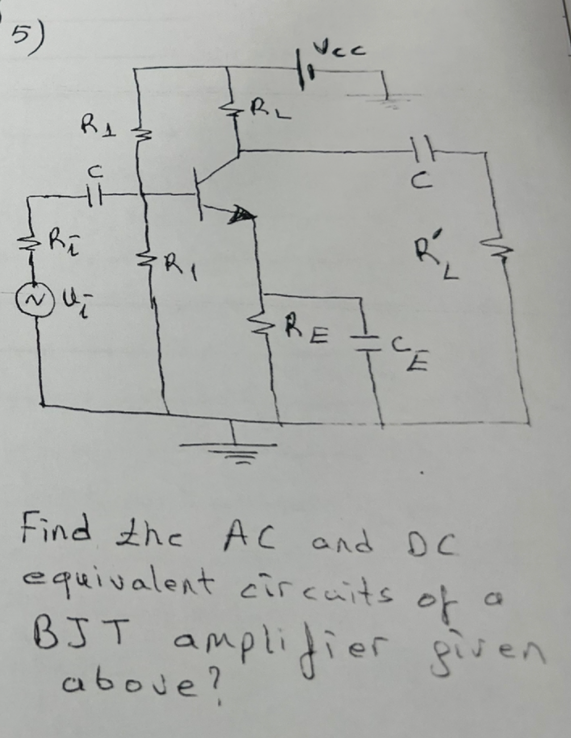 5)
Vcc
R1
RL
C
C
Ri
R1
R'L
Ui
RE
CE
Find the AC and DC
equivalent circuits of a
BJT amplifier given
above?